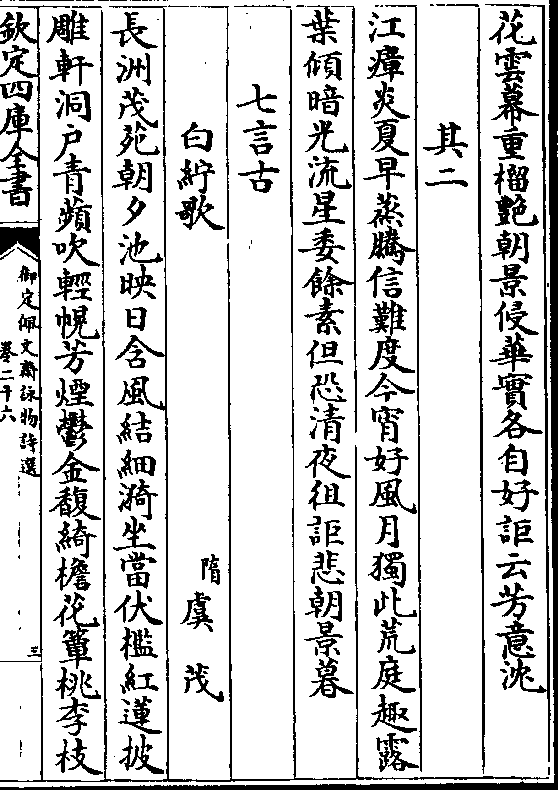 花雲幕重榴艷朝景侵華實各自好詎云芳意沈
其二
江瘴炎夏早蒸騰信難度今宵好風月獨此荒庭趣露
葉傾暗光流星委餘素但恐清夜徂詎悲朝景暮
七言古
白紵歌
隋虞茂
長洲茂苑朝夕池映日含風結細漪坐當伏檻紅蓮披
雕軒洞户青蘋吹輕幌芳煙鬱金馥綺檐花簟桃李枝
欽定四庫全書
御定佩文齋詠物詩選
卷二十六
三